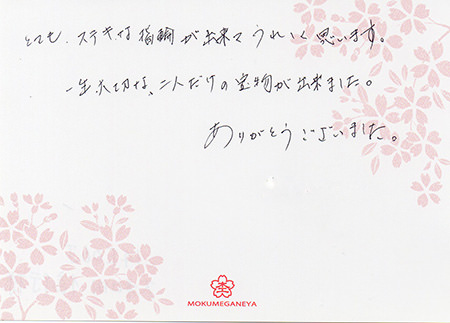 とても、ステキな指輪が出来てうれしく思います。
一生大切な、二人だけの宝物が出来ました。
ありがとうございました。
MOKUMEGANEYA